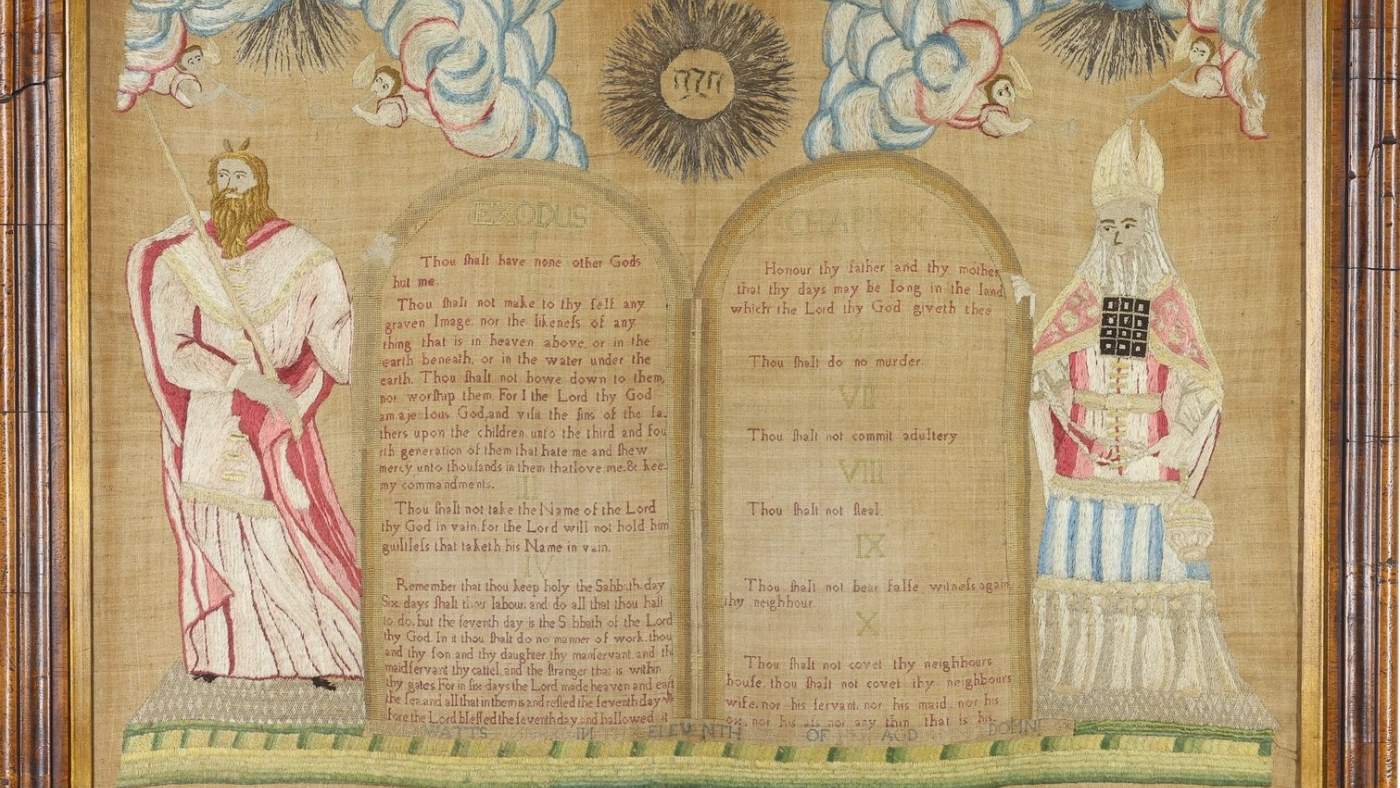 EXODUS
I
Thou ſhalt have none other Gods
but me.
Thou ſhalt not make to thy ſelf any
graven Image, nor the likeneſs of any
thing that is in heaven above, or in the
earth beneath, or in the water under the
earth. Thou ſhalt not bowe down to them,
nor worſhip them. For I the Lord thy God
am a jealous God, and viſit the ſins of the fa
thers upon the children unto the third and fou
rth generation of them that hate me and ſhew
mercy unto thouſands in them that love me, & kee
my commandments.
III
Thou ſhalt not take the Name of the Lord
thy God in vain, for the Lord will not hold him
guiltleſs that taketh his Name in vain.
IV
Remember that thou keep holy the Sabbath day
Six days ſhalt thou labour, and do all that thou haſt
to do, but the ſeventh day is the Sabbath of the Lord
thy God. In it thou ſhalt do no manner of work, thou
and thy ſon and thy daughter, thy manſervant, and th
maidſervant, thy cattel, and the ſtranger that is within
thy gates. For in ſix days the Lord made heaven and eart
the ſea, and all that in them is and reſted the ſeventh day
fore the Lord bleſſed the ſeventh day and hallowed it
Honour thy father and thy mother
that thy days may be long in the land
which the Lord thy God giveth thee
Thou ſhalt do no murder.
VII
Thou ſhalt not commit adultery
VIII
Thou ſhalt not ſteal.
IX
Thou ſhalt not bear falſe witneſs again
thy neighbour.
X
Thou ſhalt not covet thy neighbours
houſe, thou ſhalt not covet thy neighbours
wife, nor his ſervant, nor his maid, nor his
ox, nor his aſs nor any thin that is his
WATTS IN ELEVENTH OF AGD DOHNI